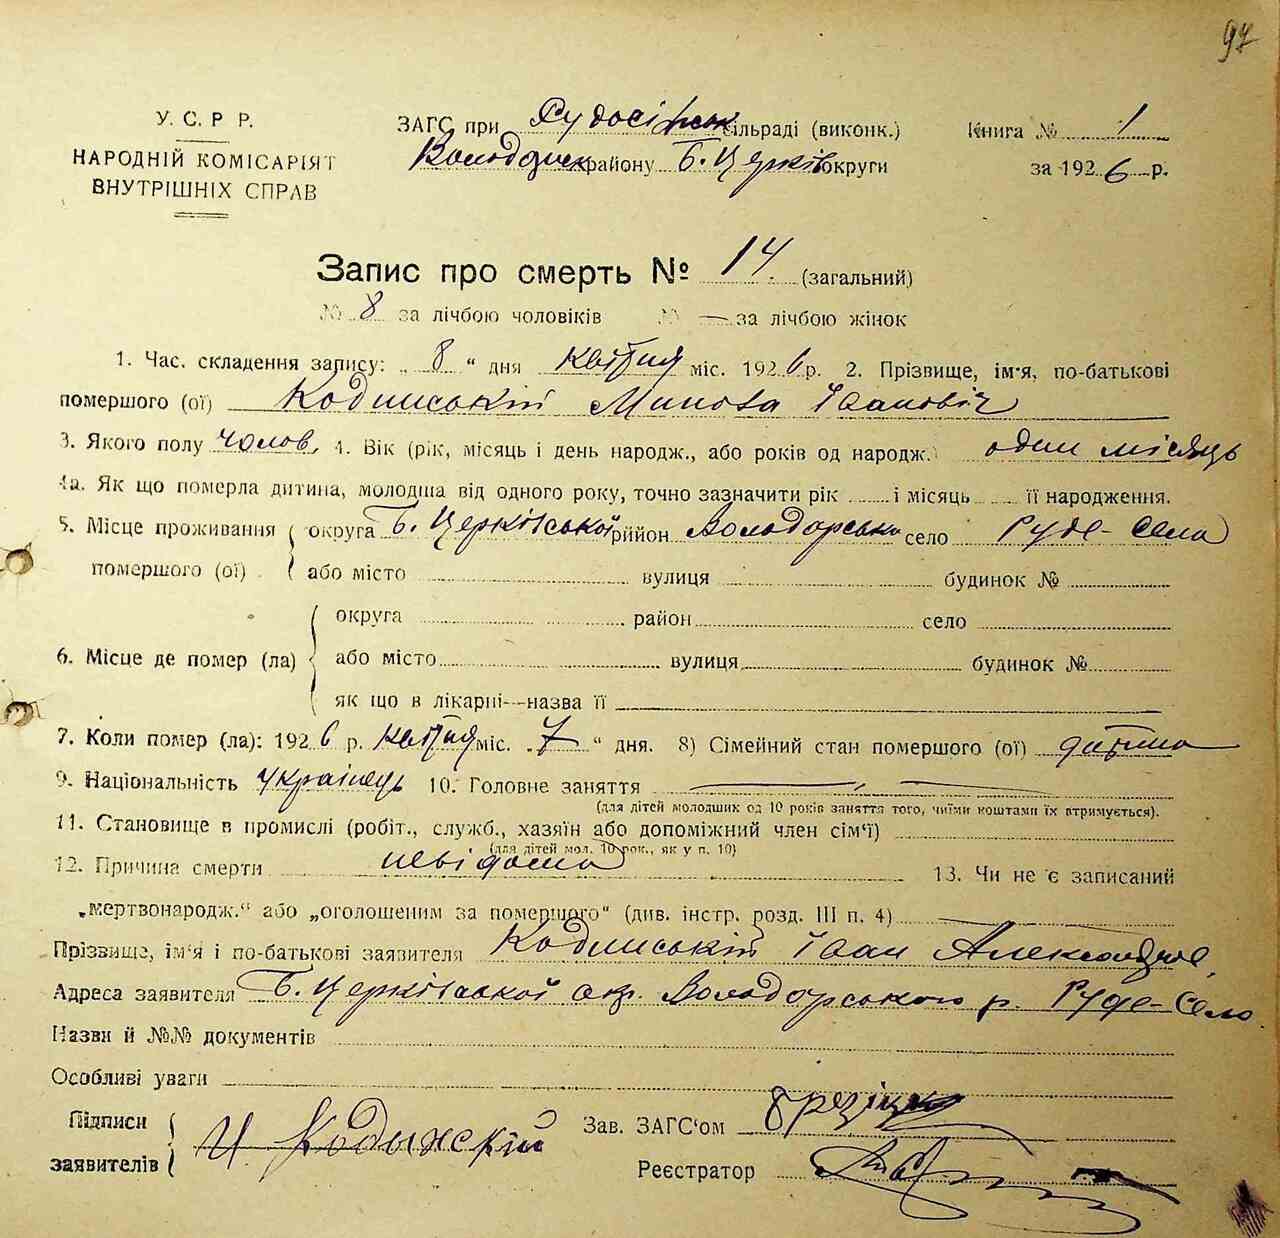 97
У. С. Р. Р.
НАРОДНІЙ КОМІСАРІЯТ
ВНУТРІШНІХ СПРАВ
ЗАГС при Рудосільск сільраді (виконк.)
Володарск району Б. Церків округи
Книга № 1
за 1926 р.
Запис про смерть № 14. (загальний)
№ 8 за лічбою чоловіків № — за лічбою жінок
1. Час. складення запису: „ 8 “ дня квітня міс. 1926 р. 2. Прізвище, ім'я, по-батькові
помершого (ої) Кодинській Микола Іванович
3. Якого полу чолов, 4. Вік (рік, місяць і день народж., або років од народж.) один місяць
4а. Як що померла дитина, молодша від одного року, точно зазначити рік ........ і місяць ........ її народження.
5. Місце проживання помершого (ої) округа Б. Церківської район Володарсько село Руде-Села
або місто вулиця будинок №
6. Місце де помер (ла) округа район село
або місто вулиця будинок №
як що в лікарні—назва її
7. Коли помер (ла): 1926 р. квітня міс. „ 7 “ дня. 8) Сімейний стан помершого (ої) дитина
9. Національність Українець 10. Головне заняття — , —
(для дітей молодших од 10 років заняття того, чиїми коштами їх втримується).
11. Становище в промислі (робіт., служб., хазяїн або допоміжний член сім'ї)
(для дітей мол. 10 рок., як у п. 10)
12. Причина смерти невідома 13. Чи не є записаний
„мертвонародж.“ або „оголошеним за помершого“ (див. інстр. розд. III п. 4) —
Прізвище, ім'я і по-батькові заявителя Кодинській Іван Александров
Адреса заявителя Б. Церківської окр. Володарського р. Руде-Село
Назви й №№ документів
Особливі уваги
Підписи заявителів И. Кодынскій
Зав. ЗАГС'ом
Реєстратор